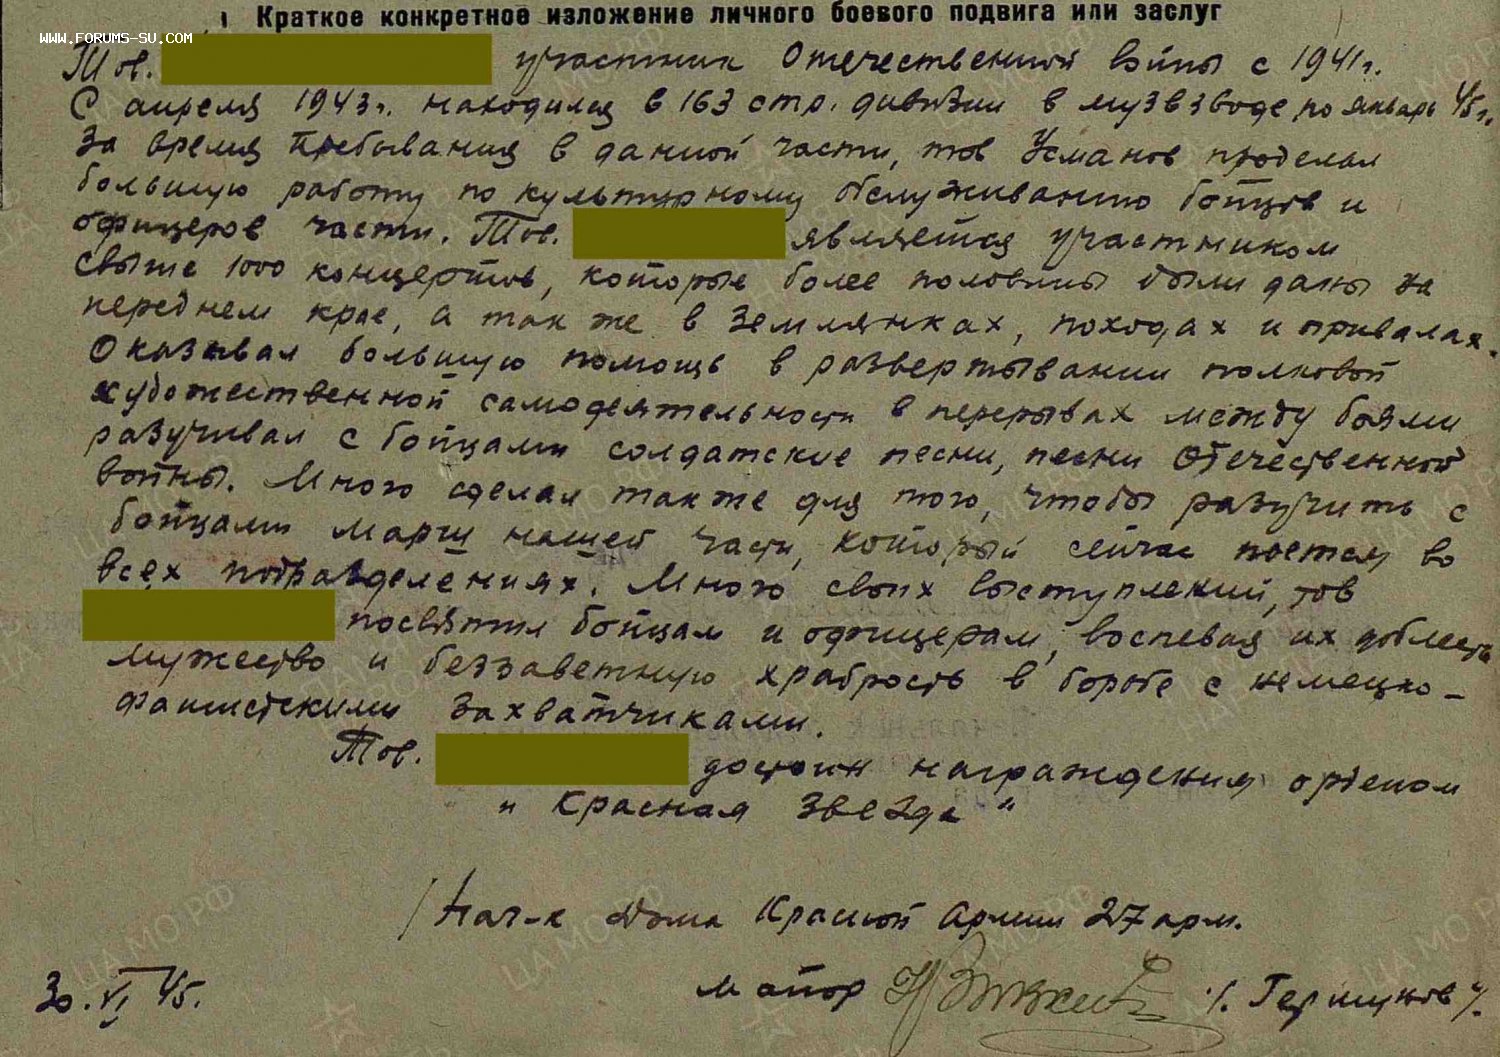 Краткое конкретное изложение личного боевого подвига или заслуг
WWW.FORUMS-SU.COM
Тов. участник Отечественной войны с 1941 г.
С апреля 1943 г. находился в 163 стр. дивизии в музвзводе по январь 45 г.
За время пребывания в данной части, тов Усманов проделал
большую работу по культурному обслуживанию бойцов и
офицеров части. Тов. является участником
свыше 1000 концертов, которые более половины были даны на
переднем крае, а так же в землянках, походах и привалах.
Оказывал большую помощь в развертывании полковой
художественной самодеятельности в перерывах между боями
разучивал с бойцами солдатские песни, песни Отечественной
войны. Много сделал также для того, чтобы разучить с
бойцами марш нашей части, который сейчас поется во
всех подразделениях. Много своих выступлений, тов
посвятил бойцам и офицерам, воспевая их доблесть
мужество и беззаветную храбрость в борьбе с немецко-
фашистскими захватчиками.
Тов. достоин награждения орденом
" Красная Звезда "
Нач-к Дома Красной Армии 27 арм.
30.VI 45.
майор